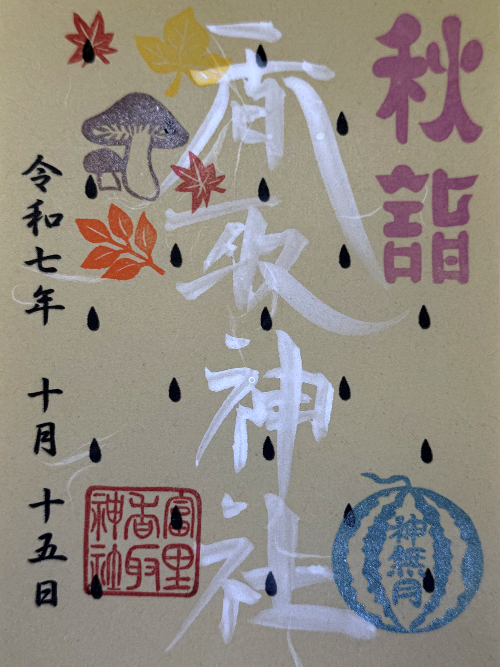 秋詣
香取神社
令和七年 十月 十五日
富里
香取
神社
神無月